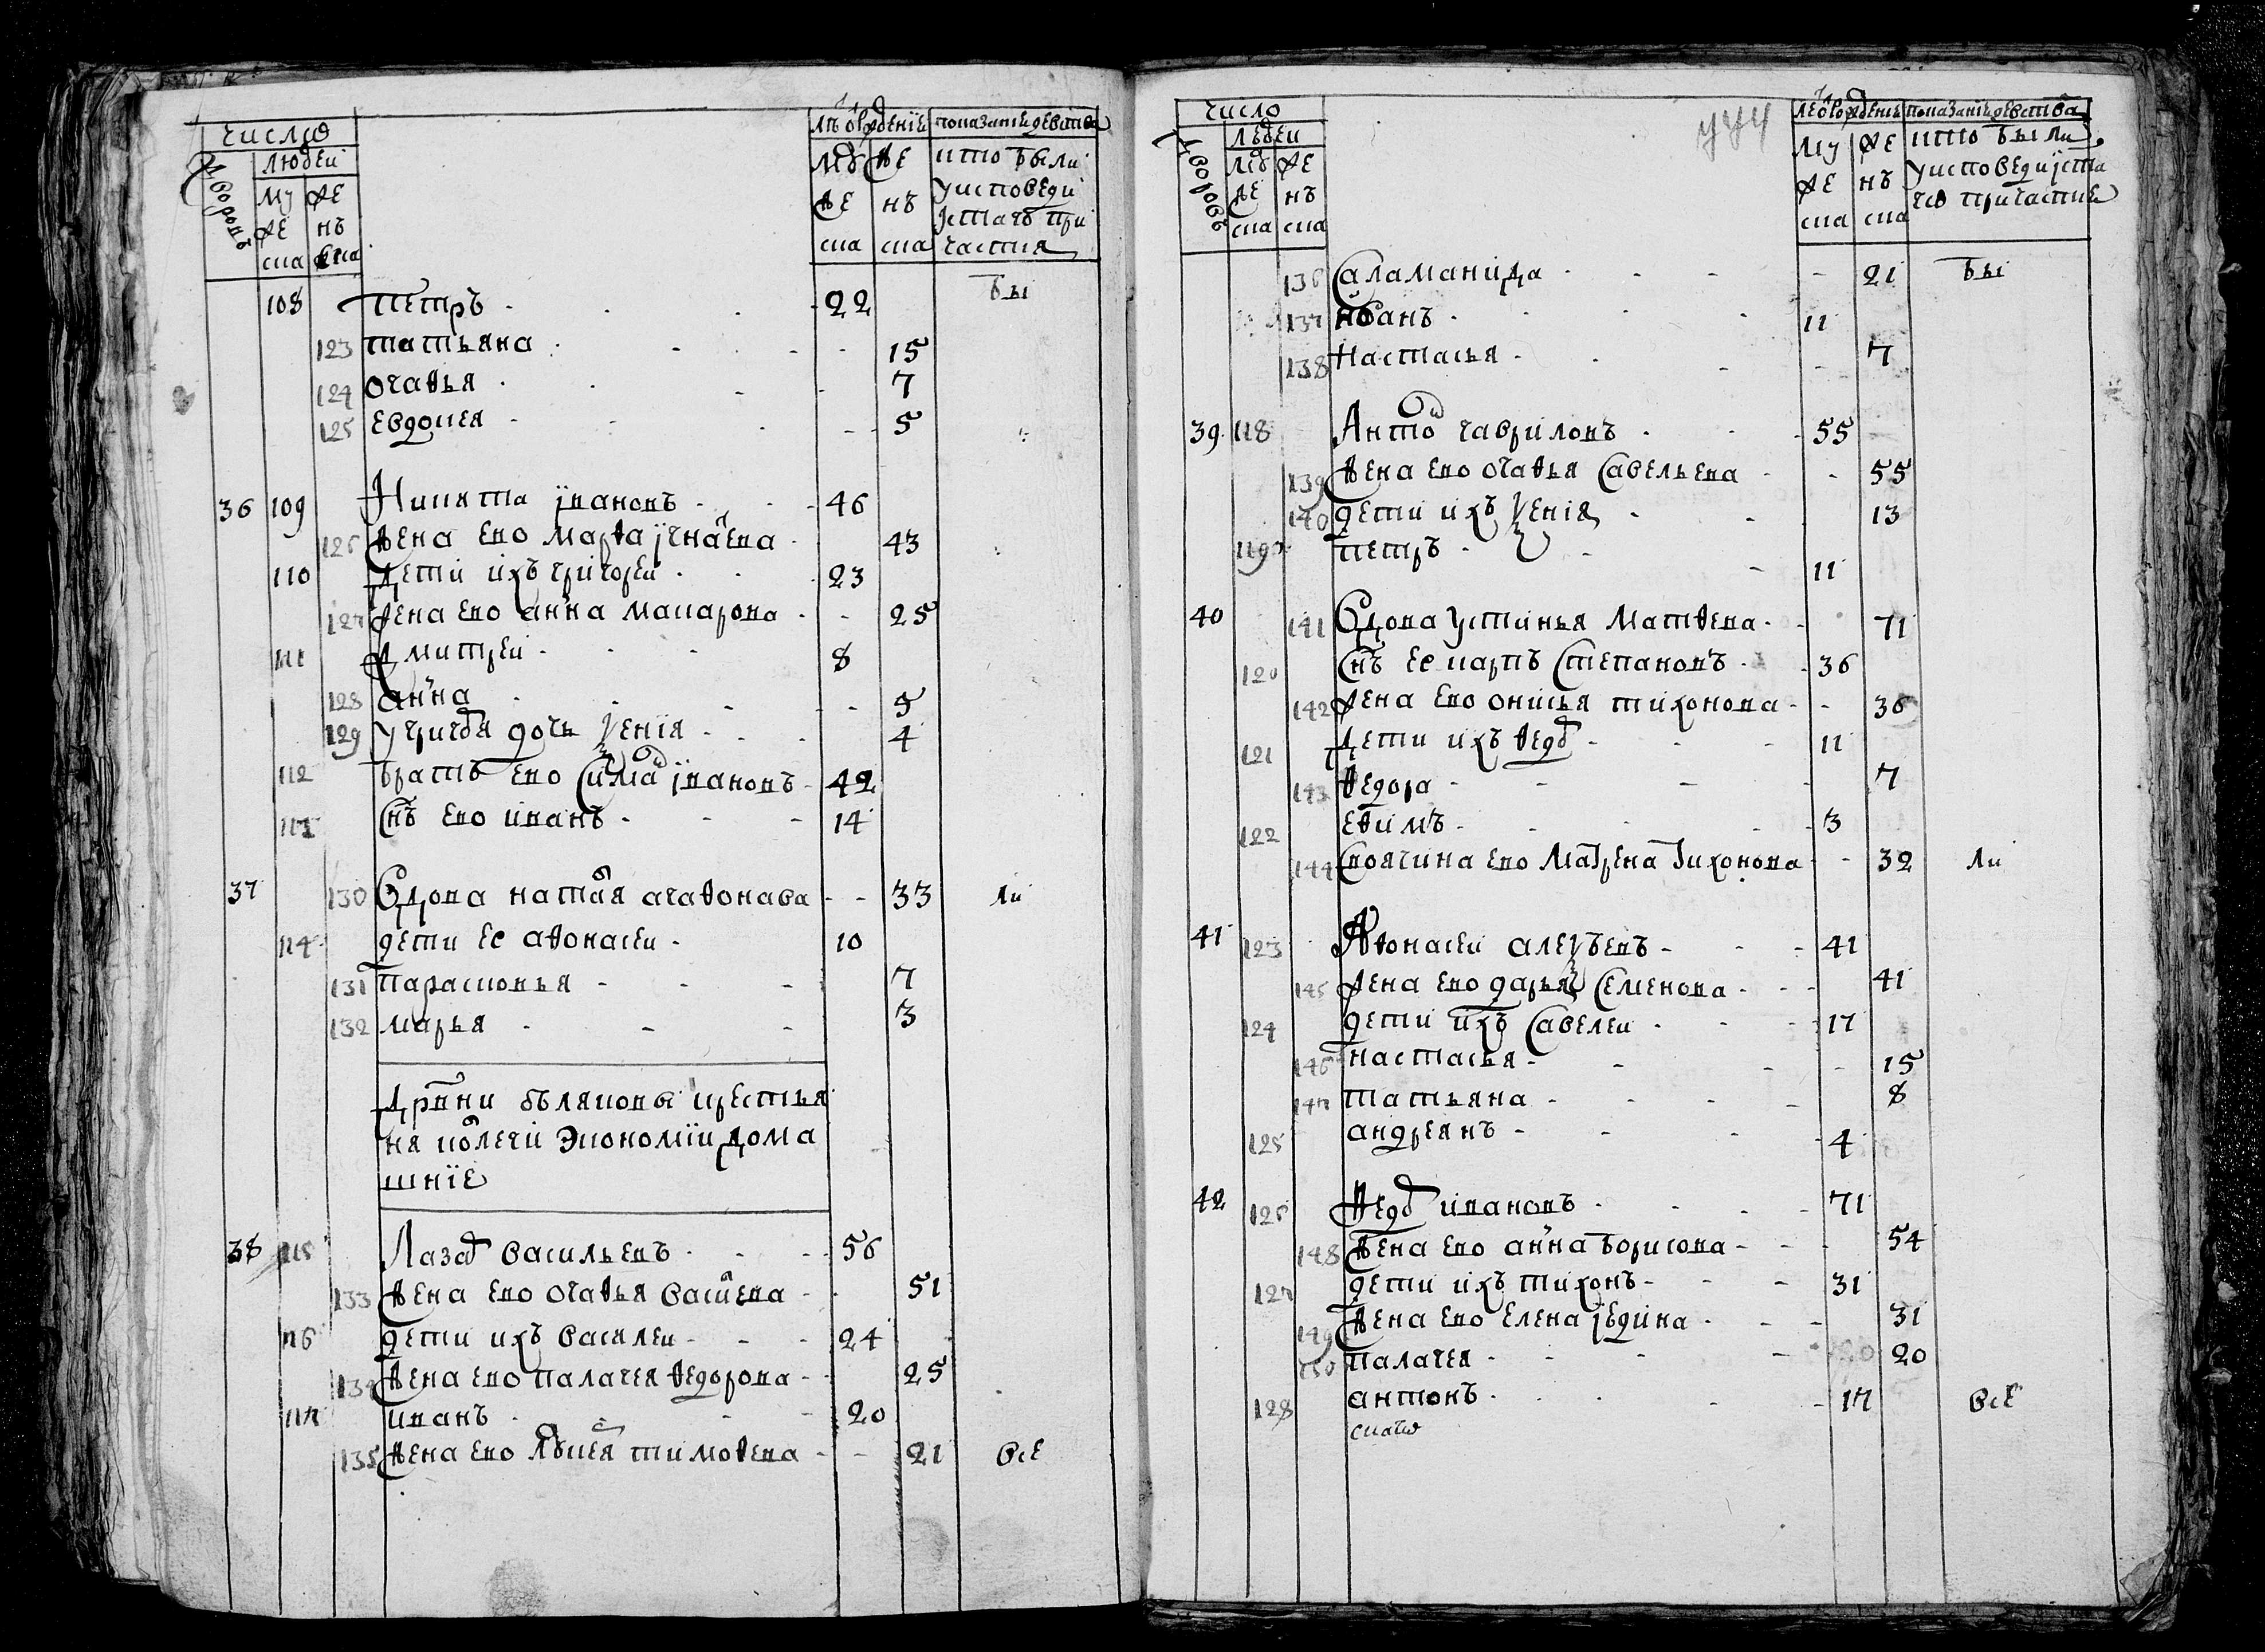 число
людей
дворовъ
му же ска
же нъ ска
лѣ ѿ рождениѣ
му же ска
же нъ ска
показаниѣ девства
кто были
у исповеди
і стаго при
частия
108 петръ 22 бы
123 татьяна 15
124 огаѳья 7
125 евдокея 5
36 109 Никита івановъ 46
126 жена ево марѳа ігнаева 43
110 дети ихъ григореи 23
127 жена ево анна макарова 25
111 дмитреи 8
128 анна 5
129 у григоя дочь ѯениѧ 4
112 братъ ево сима івановъ 42
113 снъ ево иванъ 14
37 130 вдова натаѧ агаѳонава 33 ли
114 дети ее аѳонасеи 10
131 парасковья 7
132 марья 3
дрвни бѣляковы крестья
ня колеги экономїи дома
шнїе
38 115 Лаза васильевъ 56
133 жена ево огаѳья васиева 51
116 дети ихъ василеи 24
134 жена ево палагея ѳедорова 25
117 иванъ 20
135 жена ево лукея тимоѳева 21 все
число
людеи
дворовъ
муже ска
же нъ ска
ле ѿ рождениѣ
му же ска
же нъ ска
показание девства
кто были
у исповеди і ста
го причастиѧ
136 саламанида 21 бы
137 иванъ 11
138 настасья 7
39 118 Анто гавриловъ 55
139 жена ево огаѳья савельева 55
140 дети ихъ ѯениѧ 13
119 петръ 11
40 141 вдова устинья матѳева 71
120 снъ ее карпъ степановъ 36
142 жена ево онисья тихонова 36
121 дети ихъ ѳедо 11
143 ѳедора 7
122 еѳимъ 3
144 своячина ево матрена тихонова 32 ли
41 123 Аѳонасеи алеѯѣевъ 41
145 жена ево дарья семенова 41
124 дети ихъ савелеи 17
146 настасья 15
147 татьяна 8
125 андреянъ 4
42 126 ѳедо ивановъ 71
148 жена ево анна борисова 54
127 дети ихъ тихонъ 31
149 жена ево елена редина 31
150 палагея 20
128 антонъ 17 все